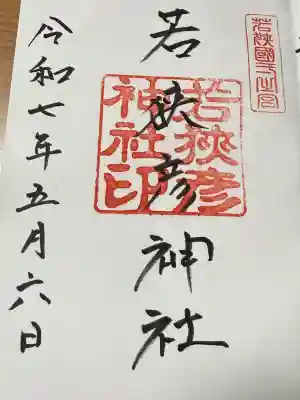 若狹國一之宮
若狭彦神社
若狭彦
神社印
令和七年五月六日